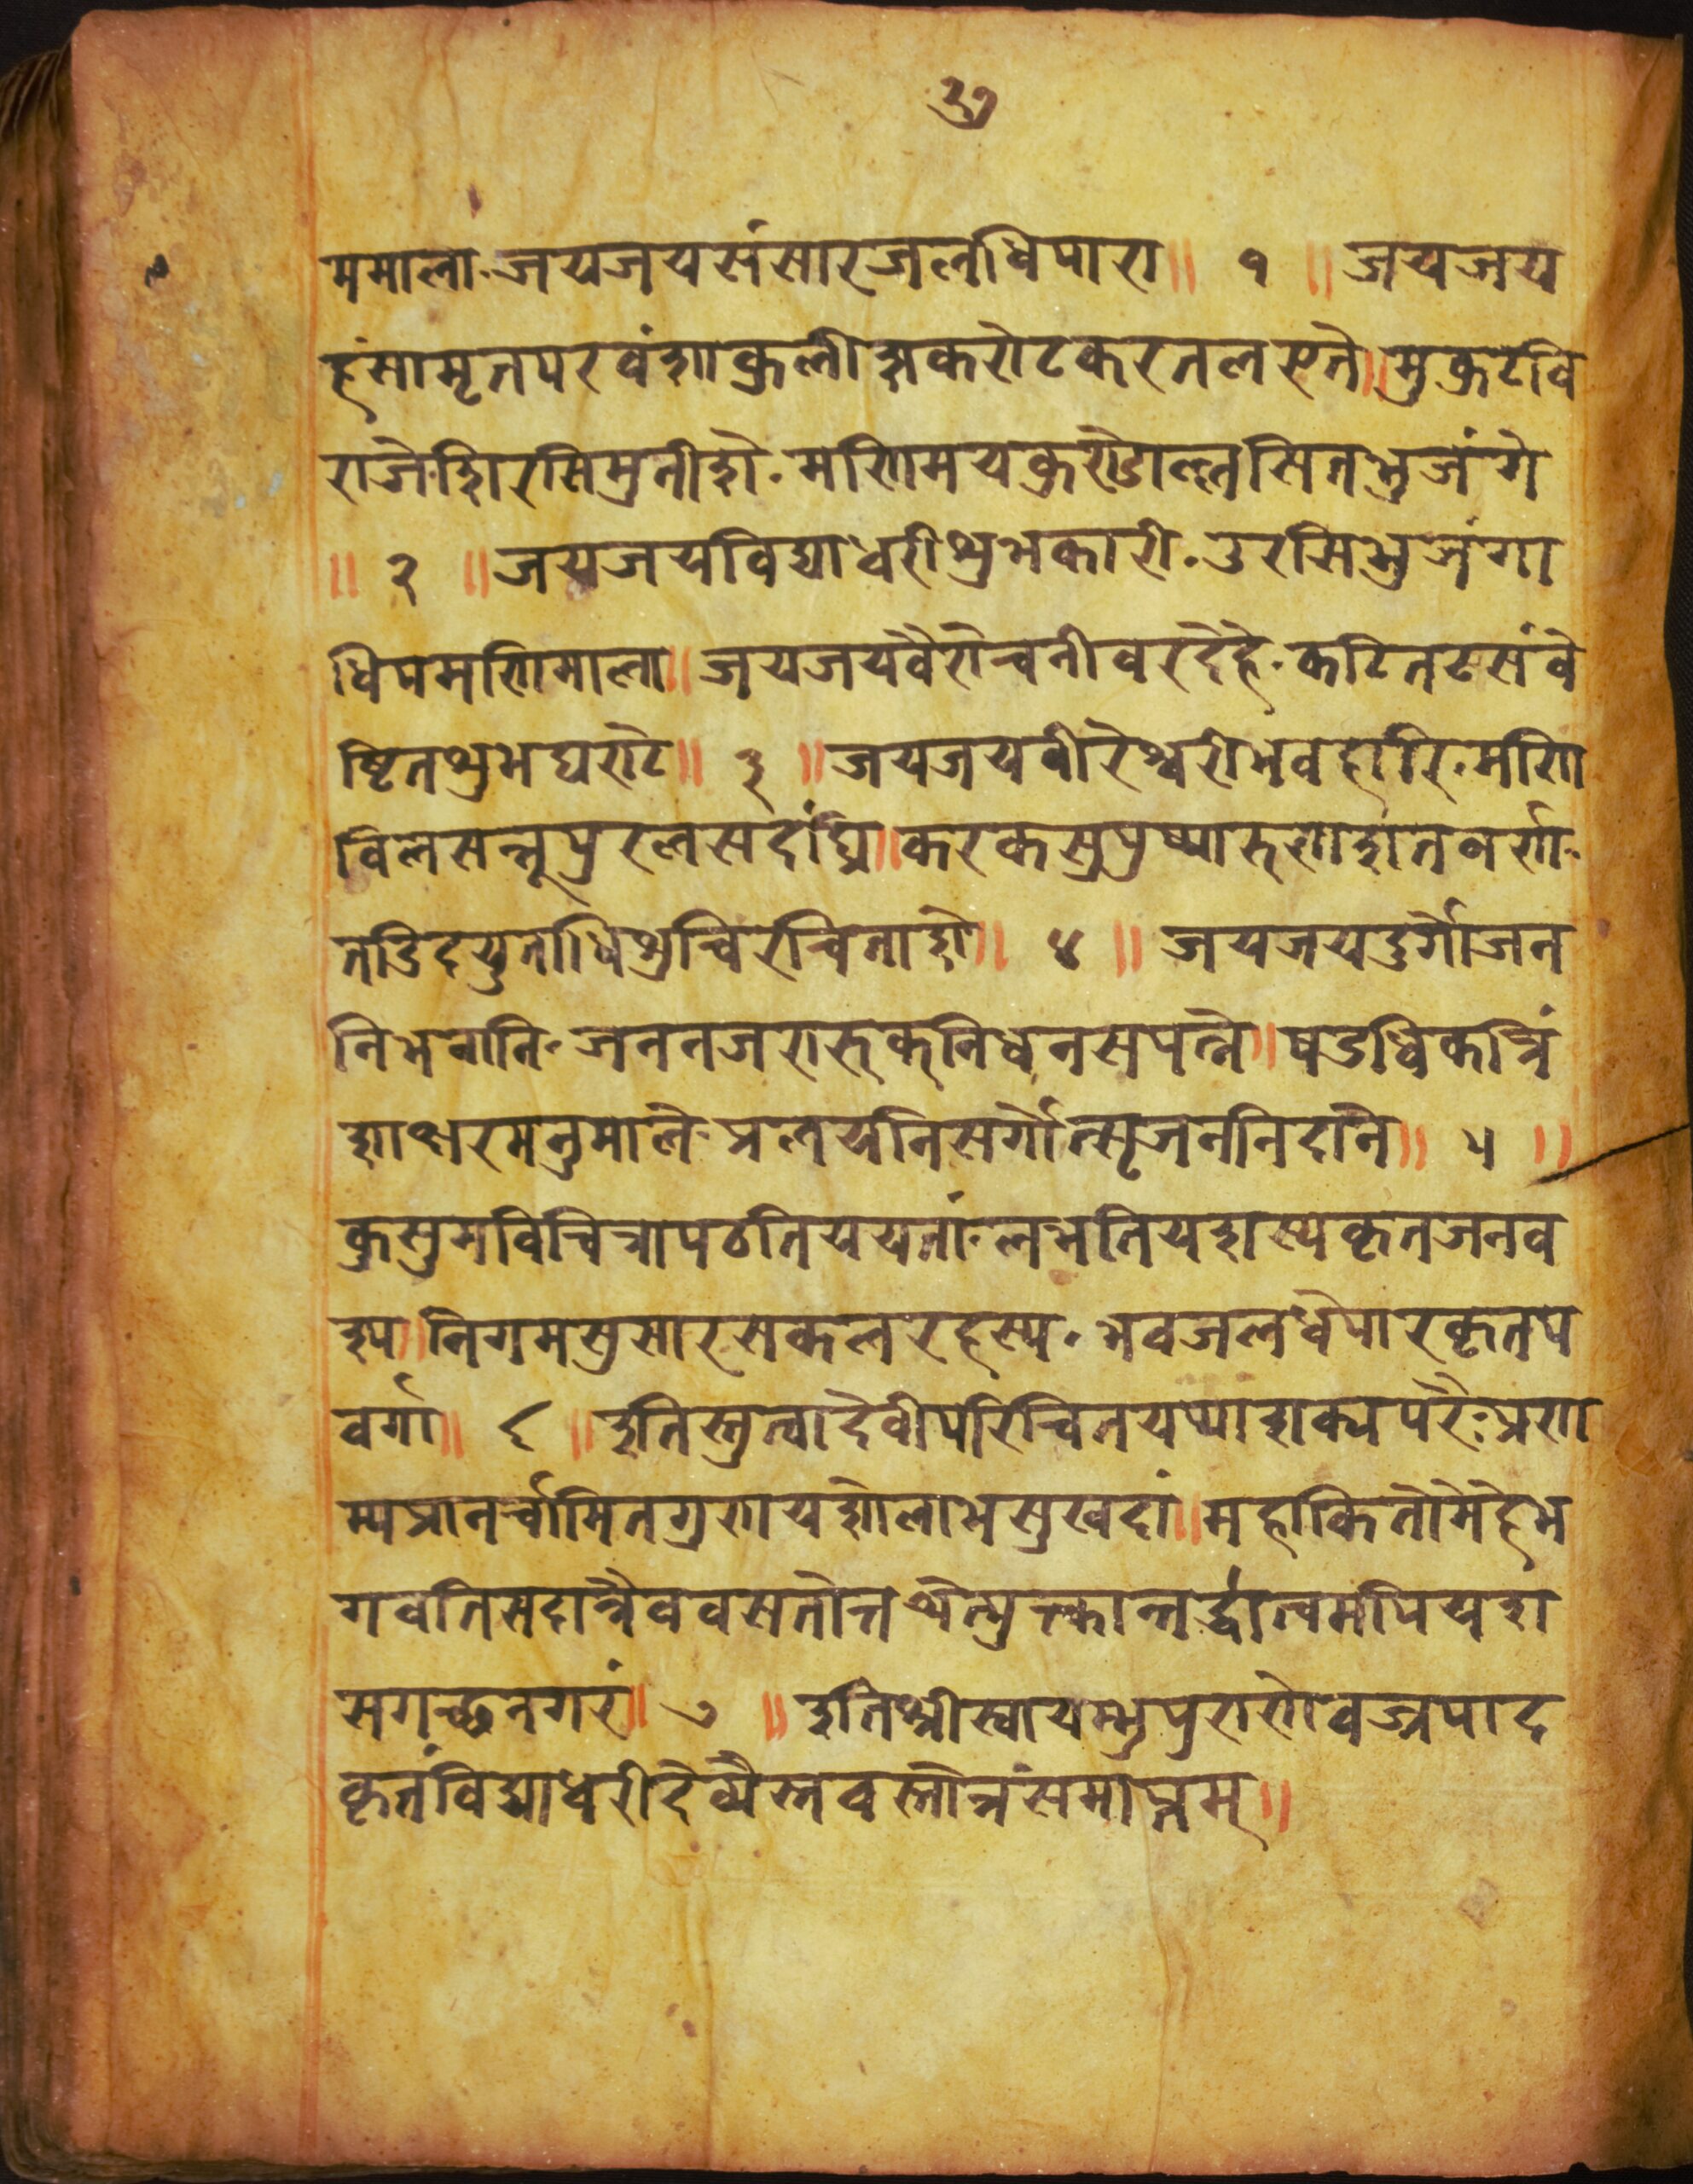 ३७
ममाला·जयजयसंसारजलधिपारा॥ १ ॥जयजय
हंसामृतपरवंशाकुलीशकरोटकरतलस्तते॥मुकुटवि
राजेशिरसिमुनीशे·मणिमयकुण्डोल्लसितभुजंगे
॥ २ ॥जयजयविद्याधरीशुभकारी·उरसिभुजंगा
धिपमणिमाला॥जयजयवैरोचनीवरदेहे·कटितटसंवे
ष्टितशुभघण्टे॥ ३ ॥जयजयवीरेश्वरीभवहारि·मणि
विलसन्नूपुरलसदांघ्रि॥करकसुपुष्पारुणशतवर्णा·
तडिदयुताधिशुचिरचिताशे॥ ४ ॥जयजयदुर्गोजन
निभवानि·जननजरारुक्निधनसपत्ने॥षडधिकत्रिं
शाक्षरमनुमाले·प्रलयनिसर्गोत्सृजननिदाने॥ ५ ॥
कुसुमविचित्रापठतिययतां·लभतियशस्यकृतजनव
श्य॥निगमसुसारसकलरहस्य·भवजलधेपारकृतप
वर्गा॥ ६ ॥इतिस्तुत्वादेवीपरिचितयप्याशक्यपरैःप्रण
म्यप्रानर्च्चामितगुणयशोलाभसुखदां॥महाकितोमेहेभ
गवतिसदात्रैववसतोत्तथेत्युक्त्कान्तर्द्धात्वमपियश
सगच्छनगरं॥ ७ ॥इतिश्रीस्वायम्भुपुराणेवज्रपाद
कृतंविद्याधरीदेव्यैस्तवस्तोत्रंसमाप्तम्॥